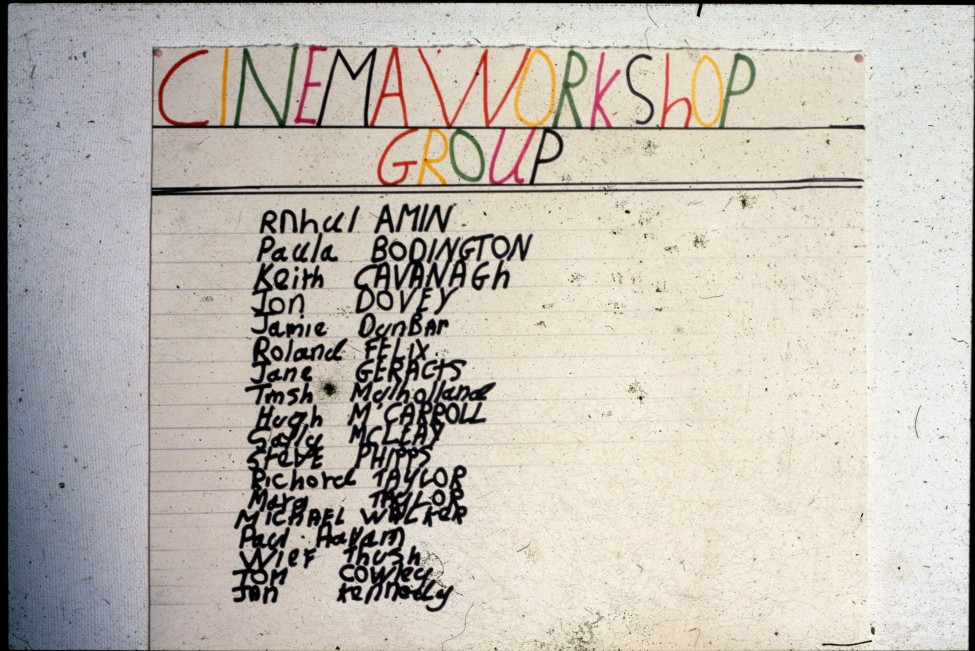 CINEMA WORKShOP
GROUP
Rahul AMIN
Paula BODINGTON
Keith CAVANAGh
Jon DOVEY
Jamie DunBar
Roland FELIX
Jane
Mulholland
Hugh M'CARROLL
Sally McLEAY
STEVE PHIPPS
Richard TAYLOR
TAYLOR
MICHAEL WALKER
Paul
Thush
TOM COWley
Jan kennedy